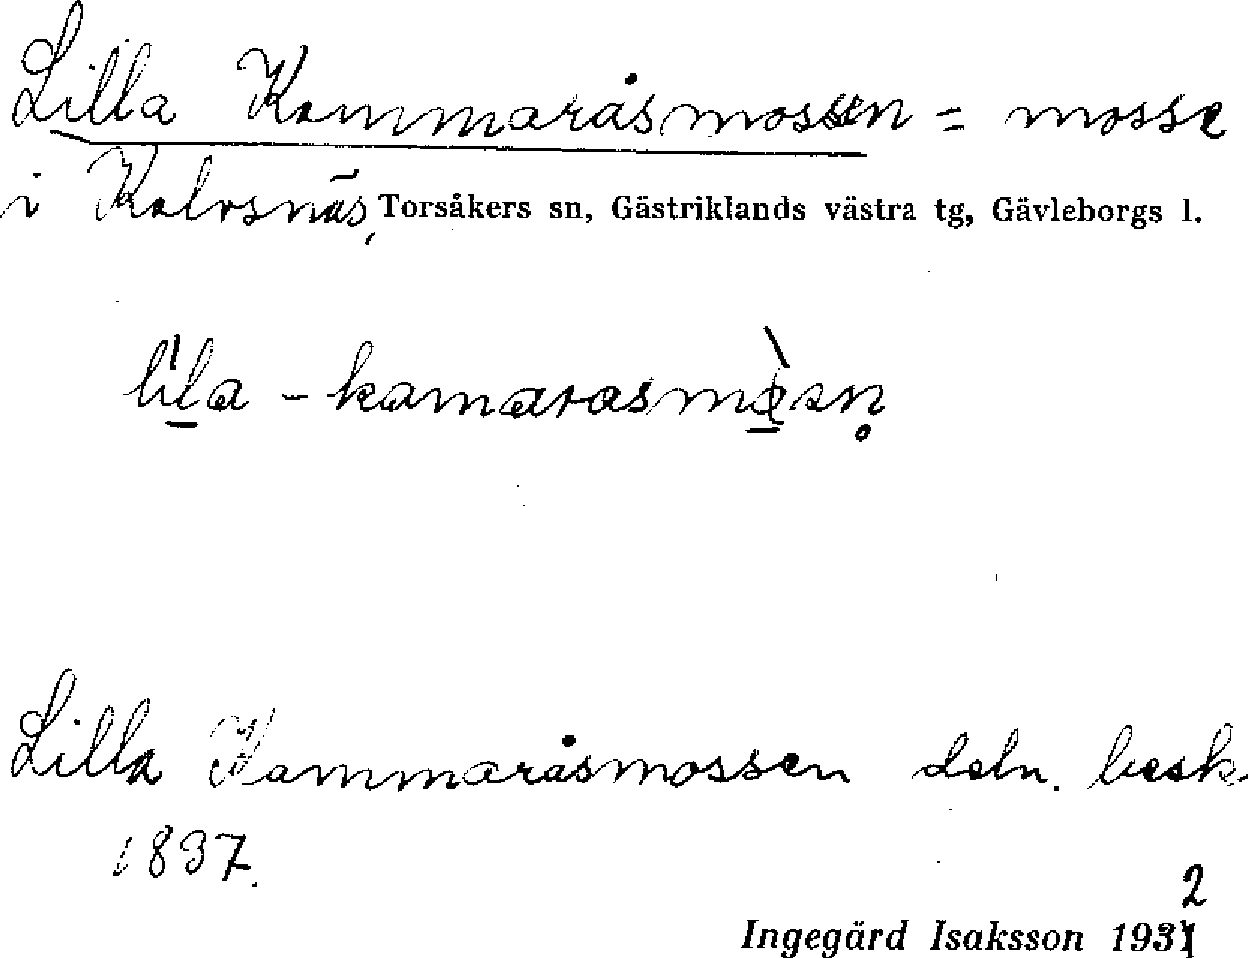 Lilla Kammaråsmossen = mosse
i Kalvsnäs, Torsåkers sn, Gästriklands västra tg, Gävleborgs l.
lìla - kamarasmòsn̥
Lilla Kammaråsmossen deln. besk.
1837.
2
Ingegärd Isaksson 1931